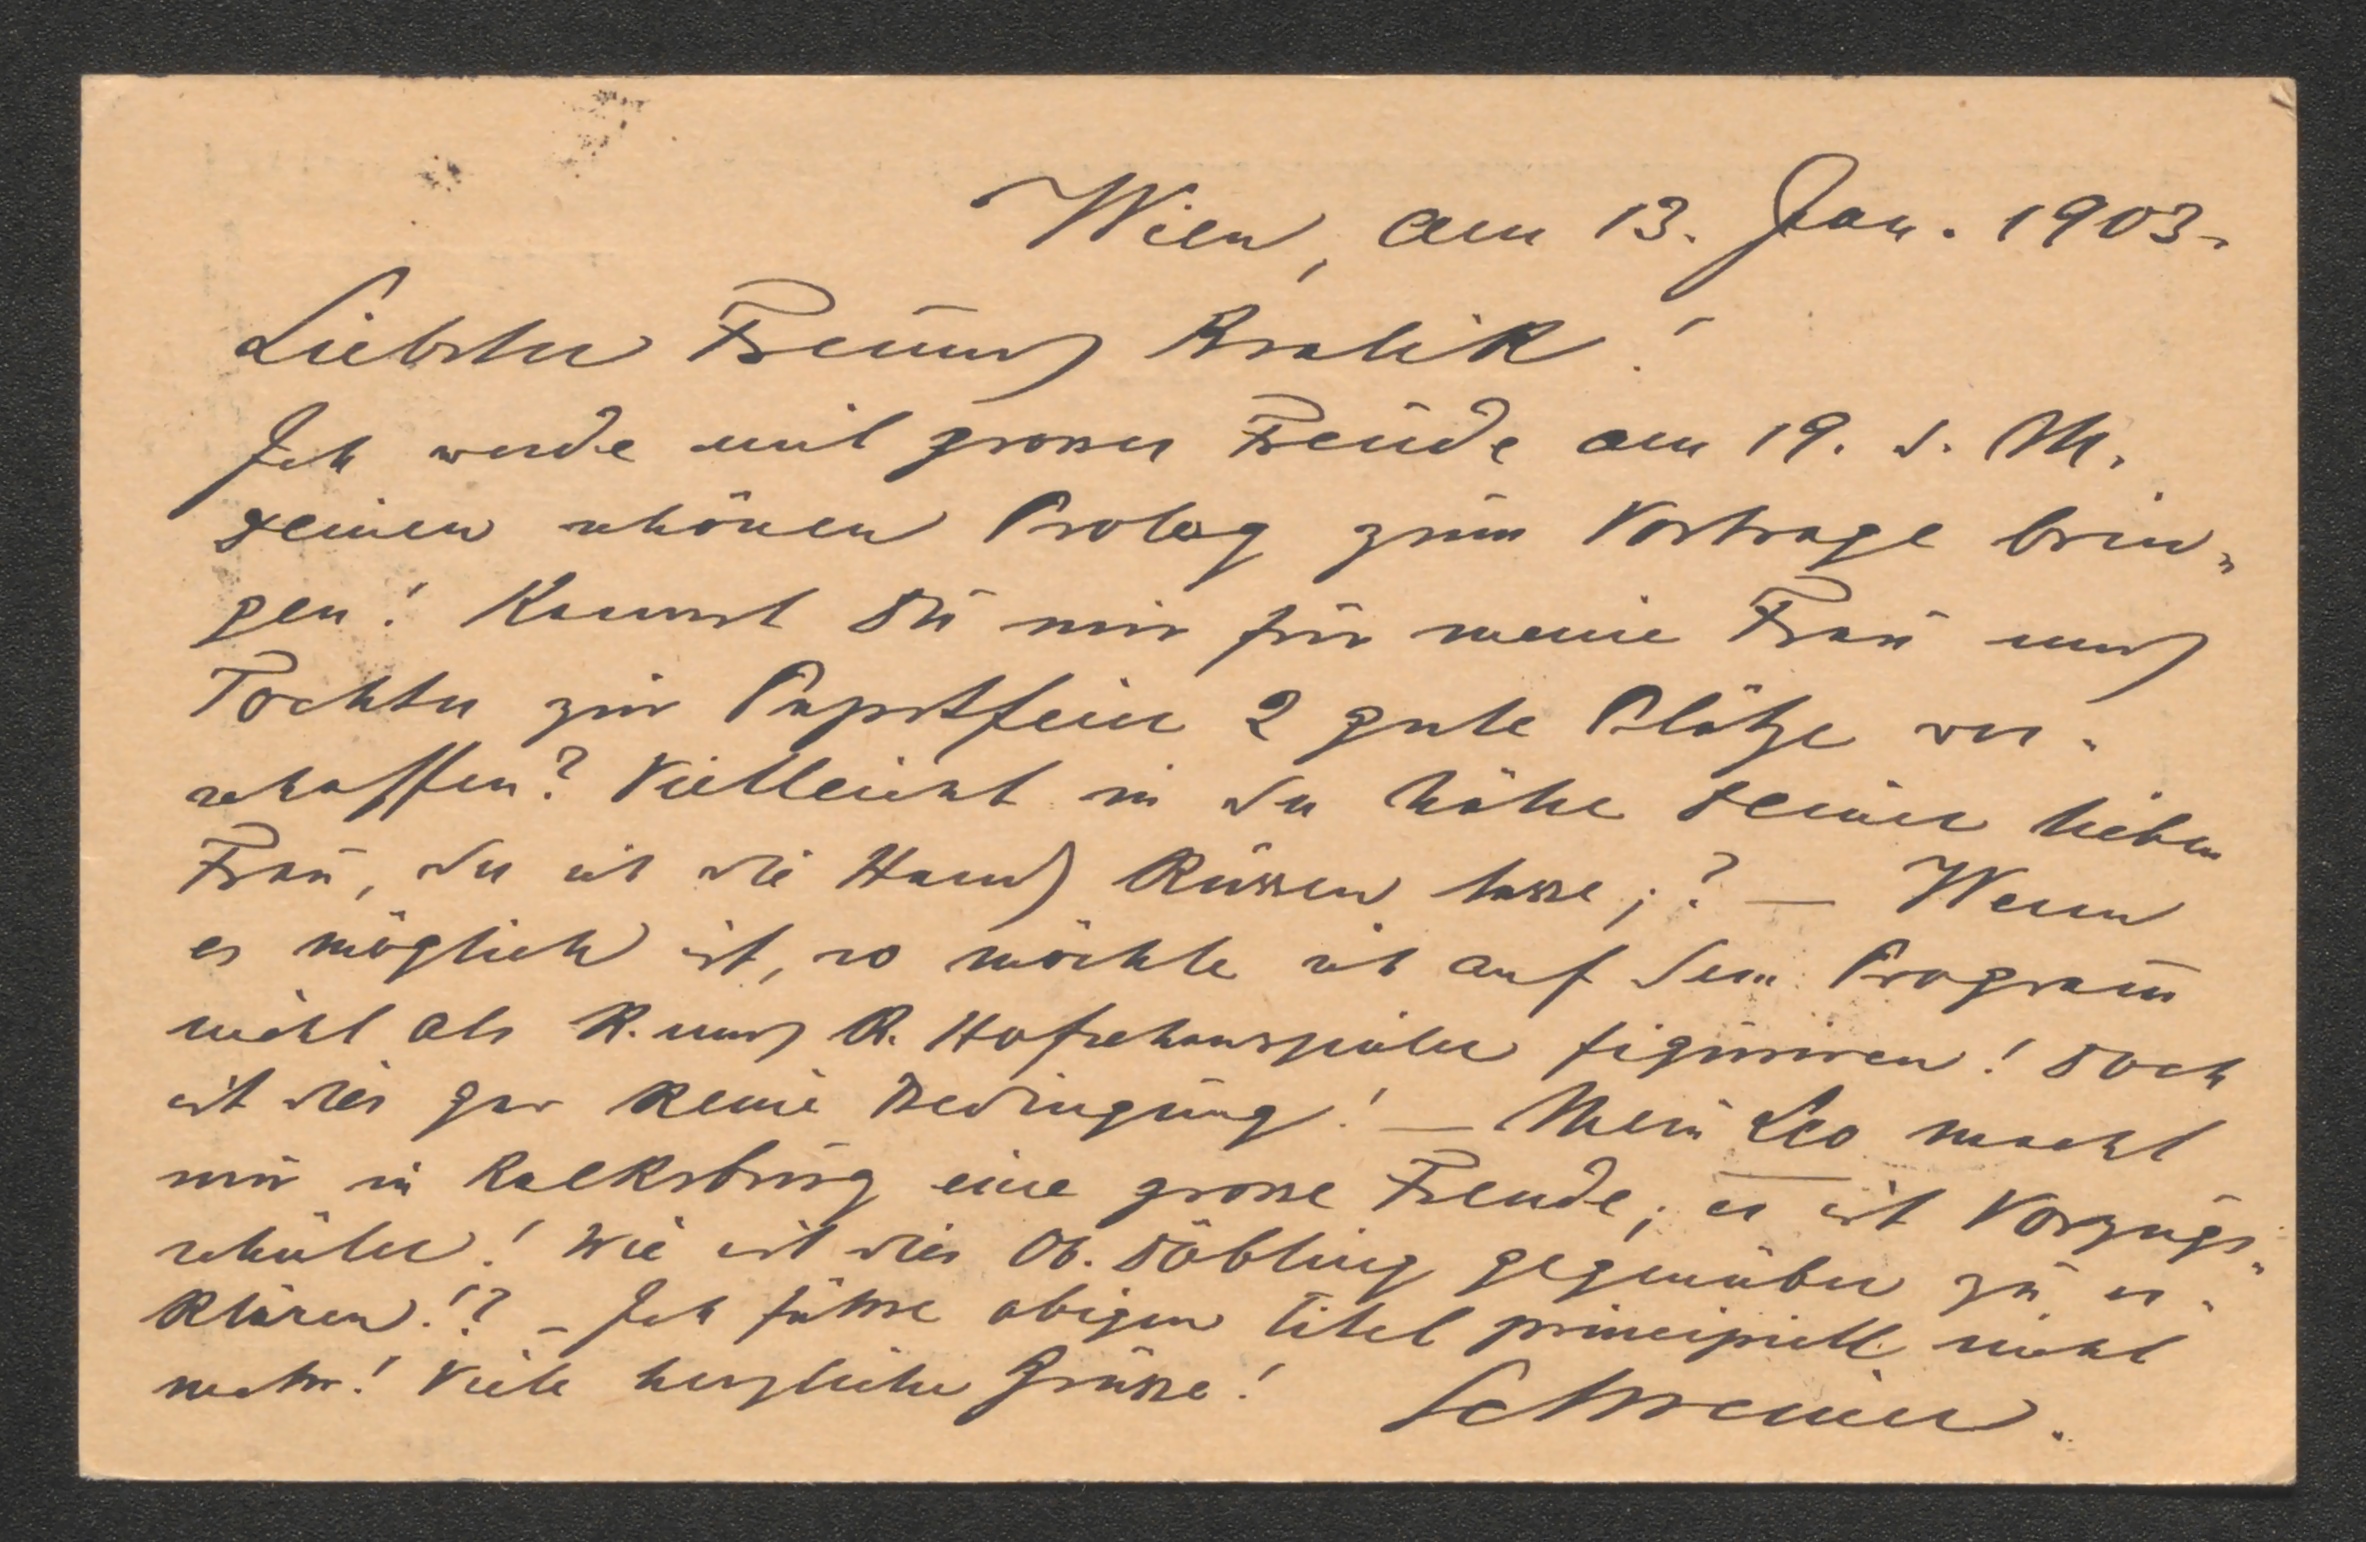 Wien, am 13. Jan. 1903.
Liebster Freund Kralik!
Ich werde mit grosser Freude am 19. d. M.
Deinen schönen Prolog zum Vortrage brin-
gen! Kannst Du mir für meine Frau und
Tochter zur Papstfeier 2 gute Plätze ver-
schaffen? Vielleicht in der Nähe Deiner lieben
Frau, der ich die Hand küssen lasse;? — Wenn
es möglich ist, so möchte ich auf dem Program̄
nicht als K. und K. Hofschauspieler figuriren! Doch
ist dies gar keine Bedingung! — Mein Leo macht
mir in Kalksburg eine grosse Freude; er ist Vorzugs-
schüler! Wie ist dies Ob. Döbling gegenüber zu er-
klären!? – Ich führe obigen Titel principiell nicht
mehr! Viele herzliche Grüsse! Schreiner.